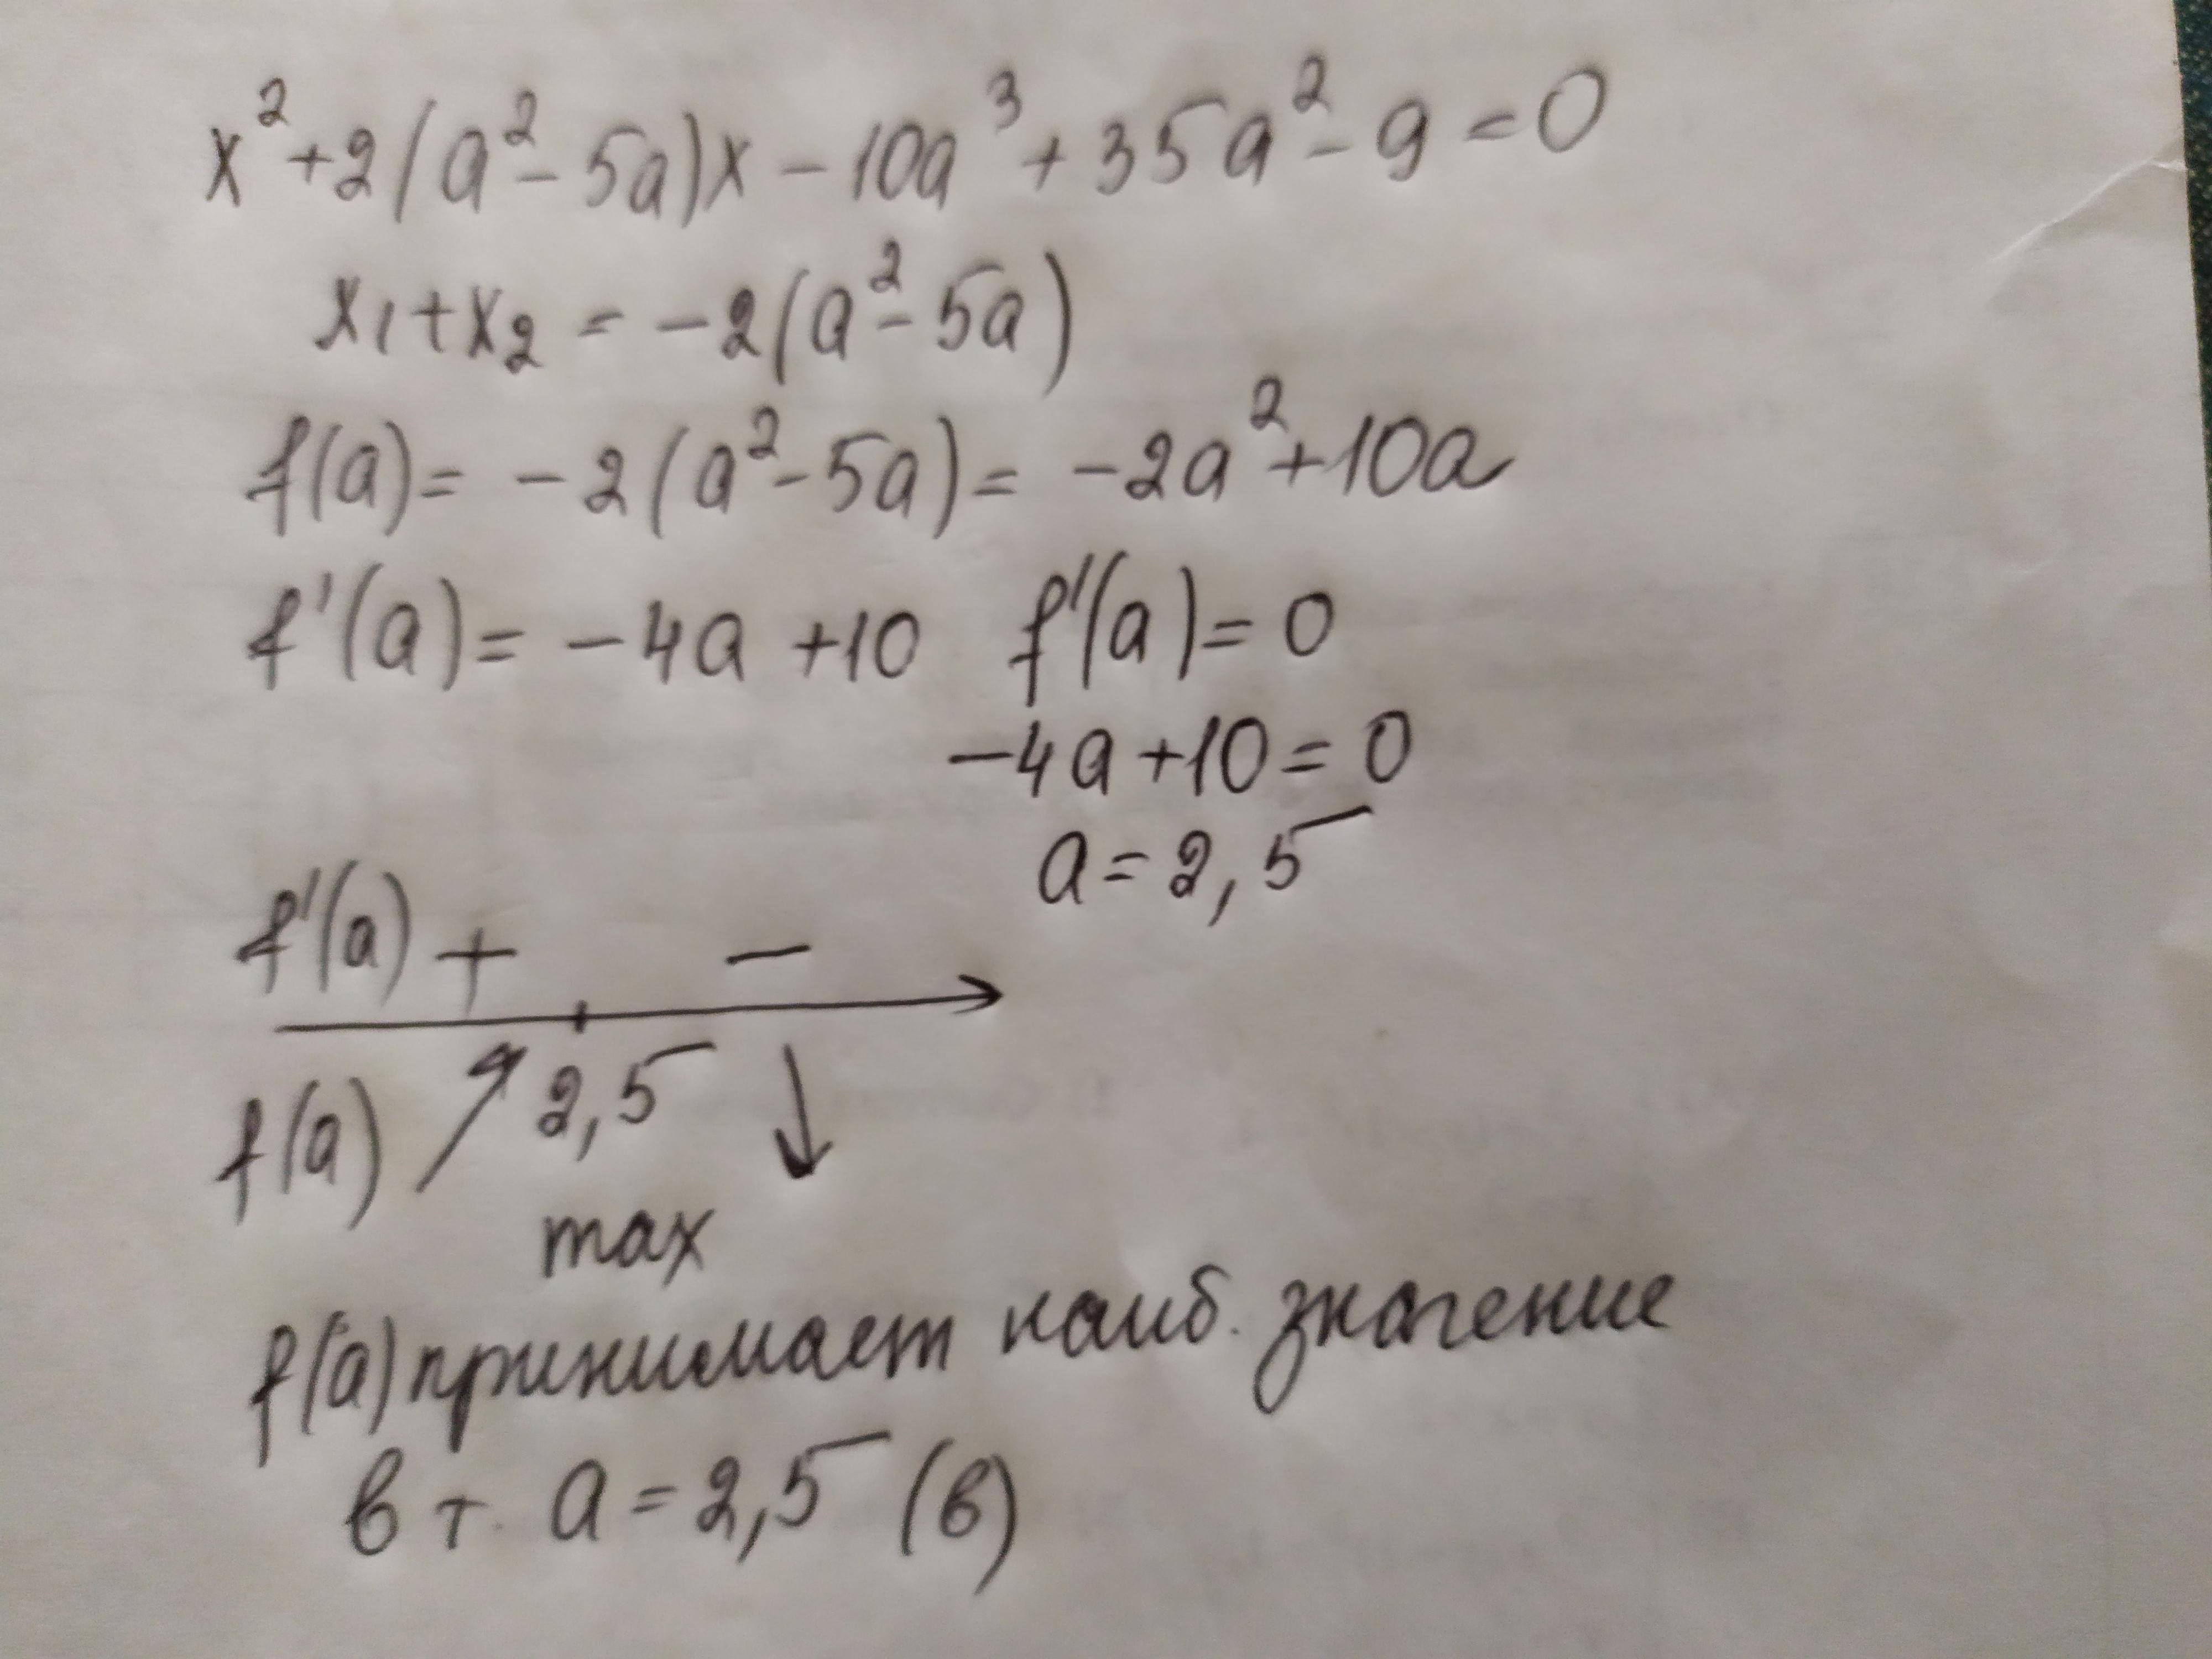 x² + 2(a² - 5a)x - 10a³ + 35a² - 9 = 0
x₁ + x₂ = -2(a² - 5a)
f(a) = -2(a² - 5a) = -2a² + 10a
f'(a) = -4a + 10 f'(a) = 0
-4a + 10 = 0
a = 2,5
f'(a) + -
f(a) ↗ 2,5 ↓
max
f(a) принимает наиб. значение
в т. a = 2,5 (в)